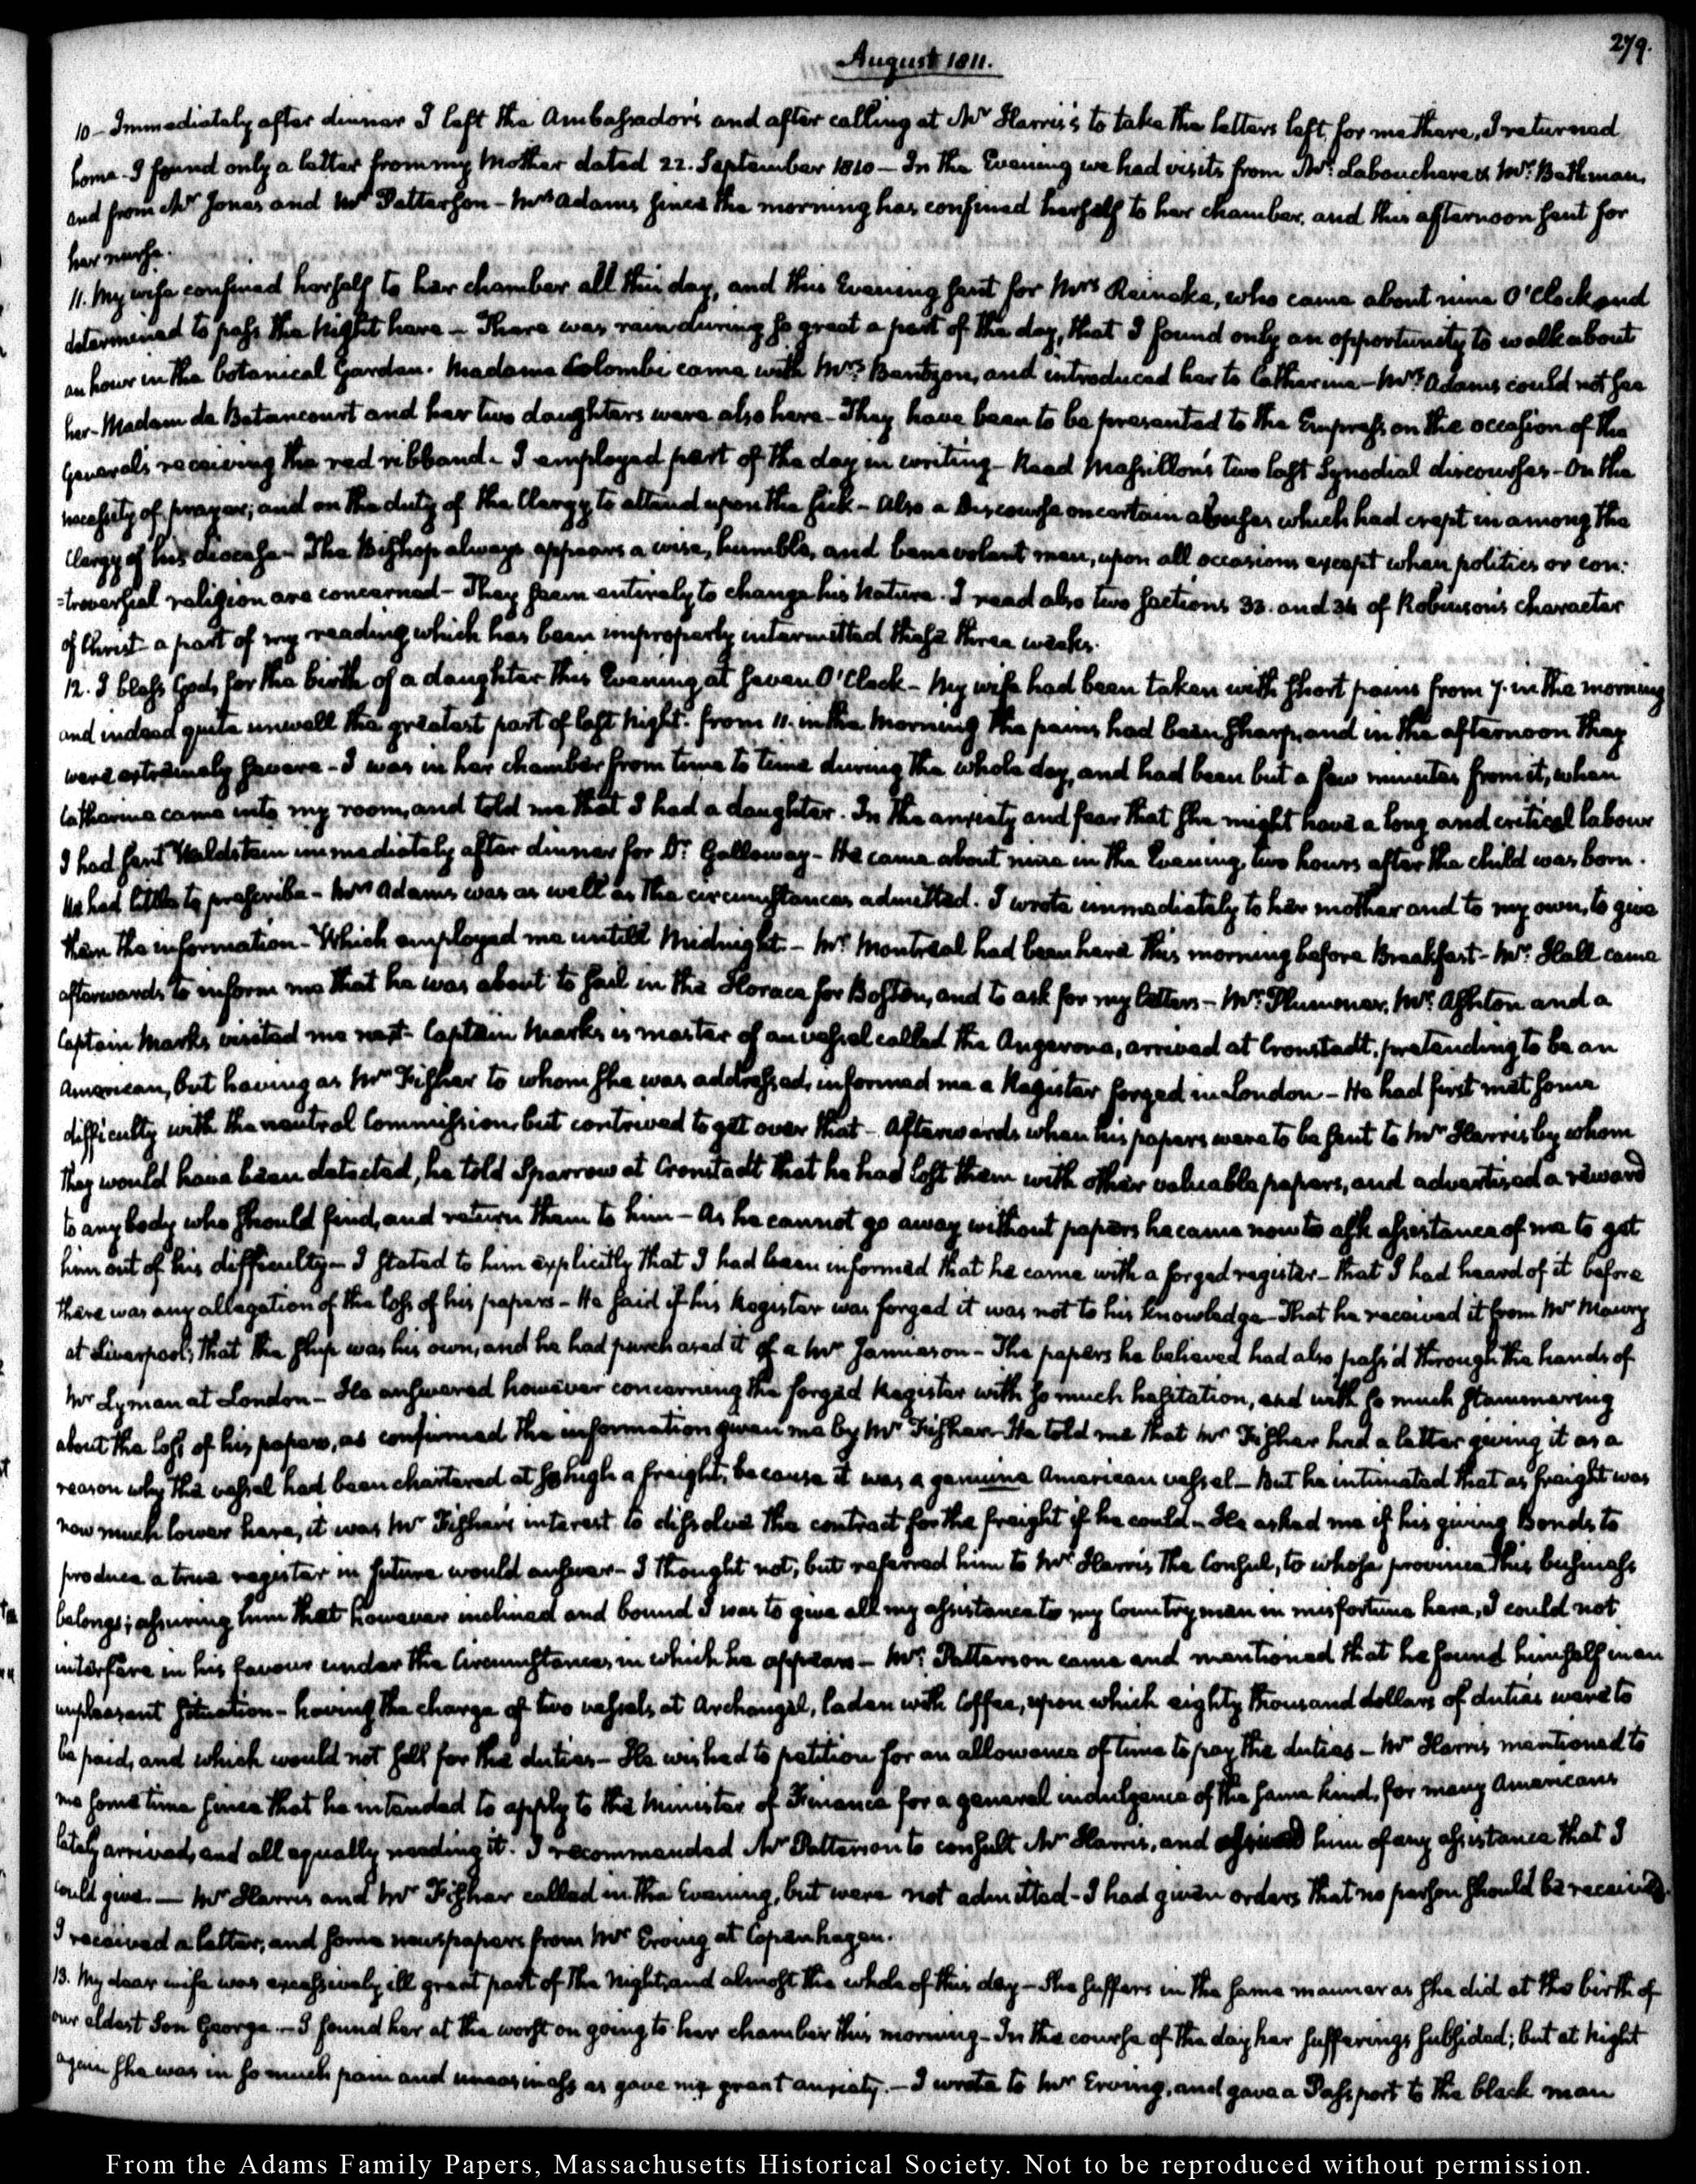 279.
August 1811.
10 - Immediately after dinner I left the Ambassador's and after calling at Mr Harris's to take the letters left for me there, I returned
home. I found only a letter from my Mother dated 22. September 1810 — In the Evening we had visits from Mr: Labouchere & Mr: Bethman,
and from Mr Jones and Mr Patterson - Mrs Adams since the morning has confined herself to her chamber, and this afternoon sent for
her nurse.
11. My wife confined herself to her chamber all this day, and this Evening sent for Mrs Reineke, who came about nine O'Clock and
determined to pass the Night here - There was rain during so great a part of the day, that I found only an opportunity to walk about
an hour in the botanical Garden. Madame Colombi came with Mrs: Bentzon, and introduced her to Catherine - Mrs: Adams could not see
her - Madam de Betancourt and her two daughters were also here - They have been to be presented to the Empress on the occasion of the
General's receiving the red ribband. I employed part of the day in writing - Read Massillon's two last Synodial discourses - On the
necessity of prayer; and on the duty of the Clergy to attend upon the sick - Also a Discourse on certain abuses which had crept in among the
Clergy of his diocese - The Bishop always appears a wise, humble, and benevolent man, upon all occasions except when politics or con:
=troversial religion are concerned - They seem entirely to change his Nature. I read also two sections 33. and 34 of Robinson's character
of Christ - a part of my reading which has been improperly intermitted these three weeks.
12. I bless God, for the birth of a daughter this Evening at seven O'Clock - My wife had been taken with short pains from 7. in the morning
and indeed quite unwell the greatest part of last Night. from 11. in the Morning the pains had been sharp, and in the afternoon they
were extremely severe - I was in her chamber from time to time during the whole day, and had been but a few minutes from it, when
Catherine came into my room, and told me that I had a daughter. In the anxiety and fear that she might have a long and critical labour
I had sent Waldstein immediately after dinner for Dr: Galloway - He came about nine in the Evening, two hours after the child was born.
He had little to prescribe - Mrs Adams was as well as the circumstances admitted. I wrote immediately to her mother and to my own, to give
them the information - Which employed me untill Midnight. - Mr: Montreal had been here this morning before Breakfast - Mr: Hall came
afterwards to inform me that he was about to sail in the Horace for Boston, and to ask for my letters - Mr: Plummer, Mr: Ashton and a
Captain Marks visited me next - Captain Marks is master of an vessel called the Angerona, arrived at Cronstadt, pretending to be an
American, but having as Mr Fisher to whom she was addressed, informed me a Register forged in London - He had first met some
difficulty with the neutral Commission, but contrived to get over that - Afterwards when his papers were to be sent to Mr Harris by whom
they would have been detected, he told Sparrow at Cronstadt that he had lost them with other valuable papers, and advertised a reward
to any body who should find, and return them to him - As he cannot go away without papers he came now to ask assistance of me to get
him out of his difficulty - I stated to him explicitly that I had been informed that he came with a forged register - that I had heard of it before
there was any allegation of the loss of his papers - He said if his Register was forged it was not to his knowledge - That he received it from Mr Maury
at Liverpool; that the ship was his own, and he had purchased it of a Mr Jamieson - The papers he believed had also pass'd through the hands of
Mr Lyman at London - He answered however concerning the forged Register with so much hesitation, and with so much stammering
about the loss of his papers, as confirmed the information given me by Mr Fisher - He told me that Mr Fisher had a letter giving it as a
reason why the vessel had been chartered at so high a freight, because it was a genuine American vessel - But he intimated that as freight was
now much lower here, it was Mr Fisher's interest to dissolve the contract for the freight if he could - He asked me if his giving Bonds to
produce a true register in future would answer - I thought not; but referred him to Mr Harris the Consul, to whose province this business
belongs; assuring him that however inclined and bound I was to give all my assistance to my Countrymen in misfortune here, I could not
interfere in his favour under the Circumstances, in which he appears - Mr: Patterson came and mentioned that he found himself in an
unpleasant situation - having the charge of two vessels at Archangel, laden with Coffee, upon which eighty thousand dollars of duties were to
be paid, and which would not sell for the duties - He wished to petition for an allowance of time to pay the duties - Mr Harris mentioned to
me some time since that he intended to apply to the Minister of Finance for a general indulgence of the same kind, for many Americans
lately arrived, and all equally needing it. I recommended Mr Patterson to consult Mr Harris, and assured him of any assistance that I
could give. — Mr Harris and Mr Fisher called in the Evening, but were not admitted - I had given orders that no person should be received.
I received a letter, and some newspapers from Mr Erving at Copenhagen.
13. My dear wife was excessively ill great part of the Night, and almost the whole of this day - She suffers in the same manner as she did at the birth of
our eldest Son George. - I found her at the worst on going to her chamber this morning - In the course of the day her sufferings subsided; but at Night
again she was in so much pain and uneasiness as gave me great anxiety. - I wrote to Mr Erving, and gave a Passport to the black man
From the Adams Family Papers, Massachusetts Historical Society. Not to be reproduced without permission.